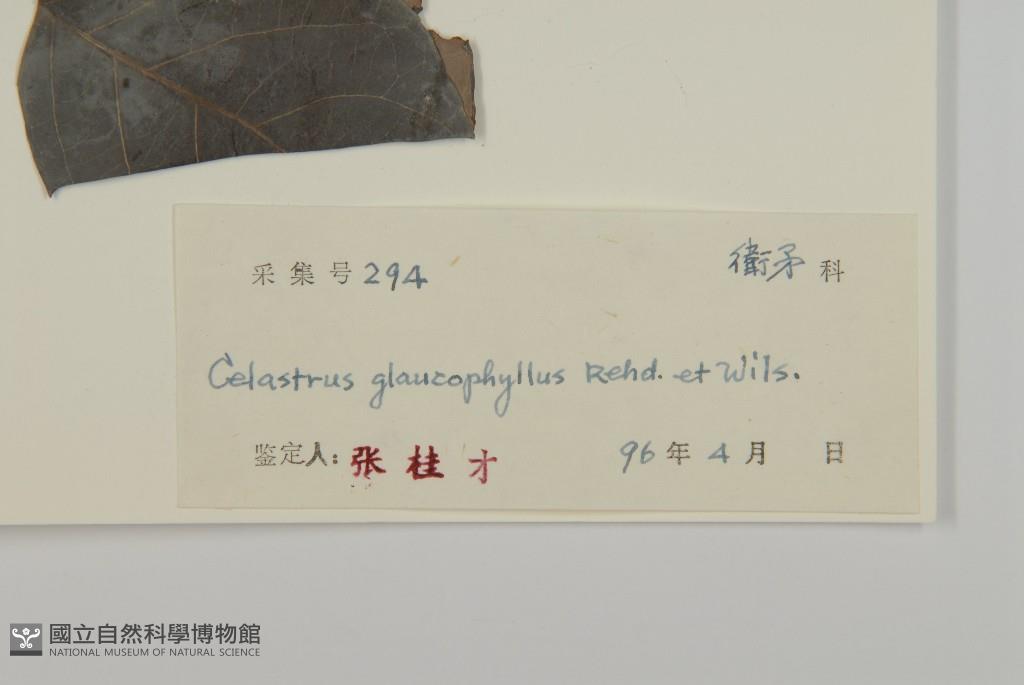 采集号 294 衛矛 科
Celastrus glaucophyllus Rehd. et Wils.
鉴定人: 张桂才 96 年 4 月 日
國立自然科學博物館
NATIONAL MUSEUM OF NATURAL SCIENCE